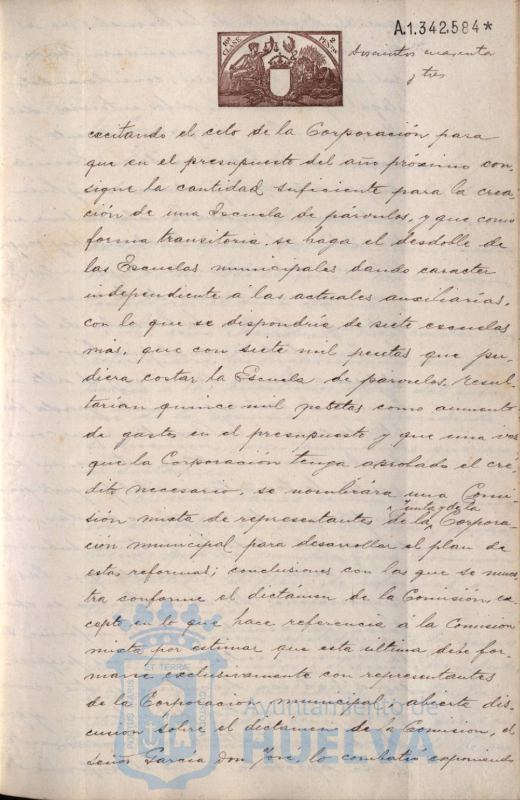 A.1.342.584*
10ª CLASE
2 PESETAS
Doscientos cuarenta
y tres
excitando el celo de la Corporación para
que en el presupuesto del año próximo con-
signe la cantidad suficiente para la crea-
ción de una Escuela de párvulos, y que como
forma transitoria, se haga el desdoble de
las Escuelas municipales dando caracter
independiente á las actuales auxiliarías,
con lo que se dispondría de siete escuelas
más, que con siete mil pesetas que pu-
diera costar la Escuela de párvulos, resul-
tarían quince mil pesetas como aumento
de gastos en el presupuesto y que una vez
que la Corporación tenga aprobado el cre-
dito necesario, se nombrára una Comi-
sión mixta de representantes de la Junta y de la Corpora-
ción municipal para desarrollar el plan de
estas reformas; conclusiones con las que se mues-
tra conforme el dictamen de la Comisión, ex-
cepto en lo que hace referencia á la Comision
mixta por estimar que esta última debe for-
marse exclusivamente con representantes
de la Corporacion municipal, abierta dis-
cusión sobre el dictamen de la Comision, el
Señor García Don José lo combatio exponiendo
PORTUS MARIS ET TERRAE CUSTODIA
Ayuntamiento de
HUELVA